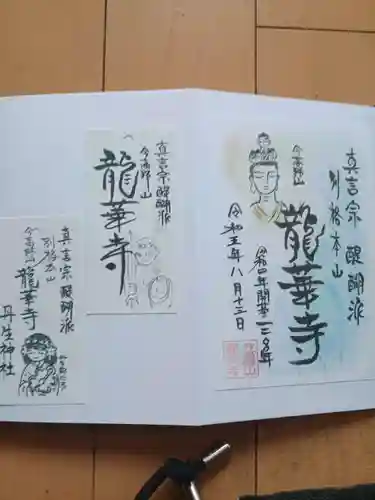 真言宗 醍醐派
別格本山
今高野山
龍華寺
令和四年開基一二〇〇年
令和五年八月十三日
真言宗醍醐派
今高野山
龍華寺
真言宗 醍醐派
別格本山
今高野山
龍華寺
丹生神社